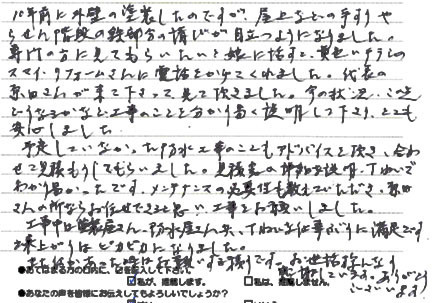 10年前に外壁の塗装したのですが、屋上などの手すりや
らせん階段の鉄部分の錆びが目立つようになりました。
専門の方に見てもらいたいと娘に話すと、黄色いチラシの
スマイ・リフォームさんに電話をかけてくれました。代表の
原田さんが来て下さって見て頂きました。今の状況、この先
どうなるかなど、工事のことを分かり易く説明して下さり、とても
安心しました
予定していなかった防水工事のこともアドバイスを頂き、合わ
せて見積もりしてもらいました。見積書の説明、ていねいで
わかり易かったです。メンテナンスの必要性も教えていただき、原田
さんの所ならお任せできると思い、工事をお願いしました。
工事中は塗装屋さん、防水屋さん、ていねいな仕事ぶりに満足です
出来上がりはピカピカになりました。
また何かあった時はお願いする積りです。お世話様になり
感謝しています。ありがとう
ございました
●あてはまる方の□内に、☑を記入して下さい。
☑私が、掲載します。 □私は、掲載しません。
●あなたの声を皆様にお伝えしてもよろしいでしょうか?